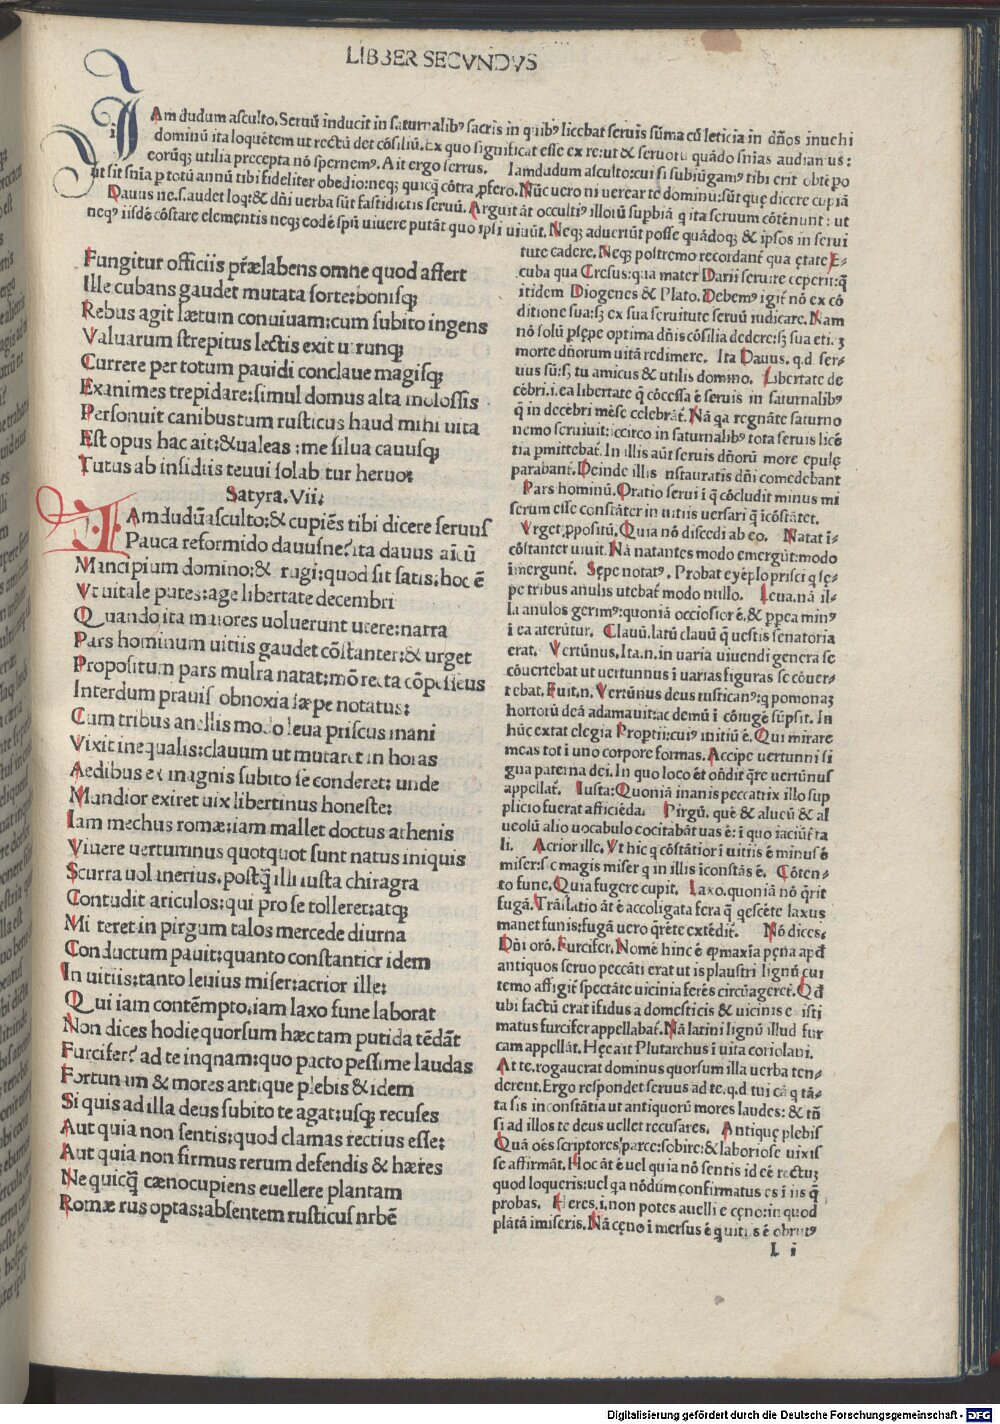 LIBBER SECVNDVS
IAm dudum asculto. Seruũ inducit in saturnalibꝰ sacris in quibꝰ licebat seruis sũma cũ leticia in dños inuehi
dominũ ita loquẽtem ut rectũ det cõsiliũ. Ex quo significat esse ex re: ut & seruoꝝ quãdo snĩas audiamus:
eorũqꝫ utilia precepta nõ spernemꝰ. Ait ergo serrus. Iamdudum asculto: cui si subiũgamꝰ tibi erit
ut sit snĩa p totũ annũ tibi fideliter obedio: neqꝫ quicq̃ cõtra ꝓfero. Nũc uero ni uerear te dominũ: sũt quę dicere cupiã
Dauus ne. s. audet loq: & dñi uerba sũt fastidictis seruũ. Arguit ãt occultiꝰ illorũ supbiã q ita seruum cõtẽnunt: ut
neqꝫ iisdẽ cõstare elementis neqꝫ eodẽ spũ uiuere putãt quo ipsi uiuũt. Neqꝫ aduertũt posse quãdoqꝫ & ipsos in serui
Fungitur officiis præelabens omne quod affert
Ille cubans gaudet mutata sorte: bonisqꝫ
Rebus agit lætum conuiuam: cum subito ingens
Valuarum strepitus lectis exit utrunqꝫ
Currere per totum pauidi conclaue magisqꝫ
Exanimes trepidare: simul domus alta molossis
Personuit canibus tum rusticus haud mihi uita
Est opus hac ait: & ualeas: me silua cauusqꝫ
Tutus ab insidiis tenui solabitur heruo:
Satyra. Vii:
IAmdudũ asculto: & cupiẽs tibi dicere seruus
Pauca reformido dauus ne? ita dauus aicũ
Mancipium domino: & frugi: quod sit satis: hoc ẽ
Vt uitale putes: age libertate decembri
Quando ita maiores uoluerunt utere: narra
Pars hominum uitiis gaudet cõstanter: & urget
Propositum pars multa natat: mõ recta cõpessens
Interdum prauis obnoxia sæpe notatus:
Cum tribus anellis modo leua priscus inani
Vixit inequalis: clauum ut mutaret in horas
Aedibus ex magnis subito se conderet: unde
Mundior exiret uix libertinus honeste:
Iam mechus romæ: iam mallet doctus athenis
Viuere uertumnus quotquot sunt natus iniquis
Scurra uolanerius. postq̃ illi iusta chiragra
Contudit articulos: qui pro se tolleret: atqꝫ
Mitteret in pirgum talos mercede diurna
Conductum pauit: quanto constantior idem
In uitiis: tanto leuius miser: acrior ille:
Qui iam contẽmpto: iam laxo fune laborat
Non dices hodie quorsum hæc tam putida tẽdãt
Furcifer? ad te inqnam: quo pacto pessime laudas
Fortunam & mores antique plebis & idem
Si quis ad illa deus subito te agat: usqꝫ recuses
Aut quia non sentis: quod clamas rectius esse:
Aut quia non firmus rerum defendis & hæres
Ne quicq̃ cænocupiens euellere plantam
Romæ rus optas: absentem rusticus nrbẽ
tute cadere. Neqꝫ postremo recordant̃ qua ętate E-
cuba qua Cresus: qua mater Darii seruire ceperit: q̃
itidem Diogenes & Plato. Debemꝰ igit̃ nõ ex cõ
ditione sua: sꝫ ex sua seruitute seruũ iudicare. Nam
nõ solũ pſępe optima dñis cõsilia dedere: sꝫ sua eti. ꝫ
morte dñorum uitã redimere. Ita Dauus. q.d ser-
uus sũ: sꝫ tu amicus & utilis domino. Libertate de
cẽbri. i. ea libertate q̃ cõcessa ẽ seruis in saturnalibꝰ
q̃ in decẽbri mẽse celebrãt̃. Nã qa regnãte saturno
nemo seruiuit: iccirco in saturnalibꝰ tota seruis licẽ
tia pmittebat̃. In illis aũt seruis dñorũ more epulę
parabant̃. Deinde illis instauratis dñi comedebant
Pars hominũ. Oratio serui ĩ q̃ cõcludit minus mi
serum esse constãter in uitiis uersari q̃ ĩcõstãter.
Vrget ꝓpositũ. Quia nõ discedi ab eo. Natat ĩ-
cõstanter uiuit. Nã natantes modo emergũt: modo
ĩmergunt̃. Sępe notatꝰ. Probat exẽplo prisci q sę-
pe tribus anulis utebat̃ modo nullo. Leua. nã il-
la anulos gerimꝰ: quoniã occiosior ẽ. & ppea minꝰ
ĩ ea aterũtur. Clauũ. latũ clauũ q̃ uestis senatoria
erat. Vertũnus. Ita. n. in uaria uiuendi genera se
cõuertebat ut uertunnus ĩ uarias figuras se cõuer-
tebat. Fuit. n. Vertũnus deus rusticanꝰ: q pomonaꝫ
hortorũ deã adamauit: ac demũ ĩ cõiugẽ sũpsit. In
hũc extat elegia Proptii: cuiꝰ initiũ ẽ. Qui mirare
meas tot ĩ uno corpore formas. Accipe uertunni si
gna paterna dei. In quo loco ẽt oñdit q̃re uertũnus
appellat̃. Iusta: Quoniã inanis peccatrix illo sup
plicio fuerat afficiẽda. Pirgũ. quẽ & alucũ & al
ueolũ alio uocabulo cocitabãt uas ẽ: ĩ quo iaciũt̃ ta
li. Acrior ille. Vt hic q cõstãtior ĩ uitiis ẽ minus ẽ
miser: sic magis miser q in illis ĩconstãs ẽ. Cõten-
to fune. Quia fugere cupit. Laxo. quoniã nõ q̃rit
fugã. Trãslatio ãt ẽ accoligata fera q̃ qescẽte laxus
manet funis: fugã uero q̃rẽte extẽdit̃. Nõ dices.
Dñi orõ. Furcifer. Nomẽ hinc ẽ ꝙ maxĩa pęna apđ
antiquos seruo peccãti erat ut is plaustri lignũ cui
temo affigit̃ spectãte uicinia ferẽs circũageret̃. Qđ
ubi factũ erat ifidus a domesticis & uicinis existi
matus furcifer appellabat̃. Nã latini lignũ illud fur
cam appellãt. Hęc ait Plutarchus ĩ uita coriolani.
At te. rogauerat dominus quorsum illa uerba ten-
derent. Ergo respondet seruus ad te. q.d tui cã q tã-
ta sis inconstãtia ut antiquorũ mores laudes: & tñ
si ad illos te deus uellet recusares. Antiquę plebis
Quã oẽs scriptores parce: sobire: & laboriose uixis
se affirmãt. Hoc ãt ẽ uel quia nõ sentis id eẽ rectuꝫ
quod loqueris: uel qa nõdum confirmatus es ĩ iis q̃
probas. Heres. i. non potes auelli e cęno: in quod
plãtã ĩmiseris. Nã cęno ĩ mersus ẽ q̃ uitiis ẽ obrutꝰ
L i
Digitalisierung gefördert durch die Deutsche Forschungsgemeinschaft - DFG